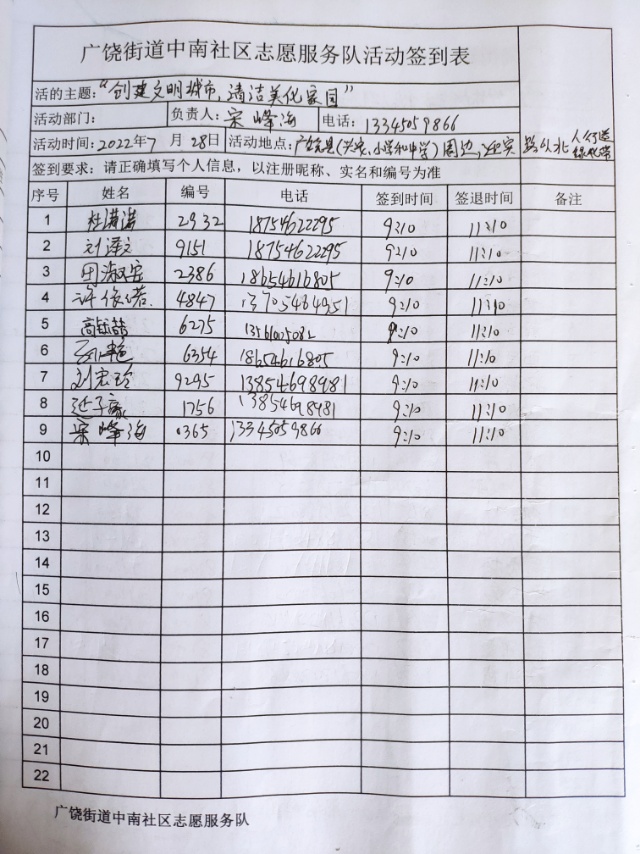 广饶街道中南社区志愿服务队活动签到表
活的主题：“创建文明城市，清洁美化家园”
活动部门： 负责人：宋峰海 电话：13345059866
活动时间：2022年7月28日 活动地点：广饶县( 小学和中学)周边, 迎宾路以北 人行道 绿化带
签到要求：请正确填写个人信息，以注册昵称、实名和编号为准
序号 姓名 编号 电话 签到时间 签退时间 备注
1 杜潇潇 2932 18754622295 9:10 11:10
2 刘译文 9151 18754622295 9:10 11:10
3 田淑宏 2386 18654616805 9:10 11:10
4 许依诺 4847 13705464951 9:10 11:10
5 高钰喆 6275 9:10 11:10
6 6354 18654616805 9:10 11:10
7 刘宏玲 9295 13854698981 9:10 11:10
8 1756 13854698981 9:10 11:10
9 宋峰海 0365 13345059866 9:10 11:10
10
11
12
13
14
15
16
17
18
19
20
21
22
广饶街道中南社区志愿服务队